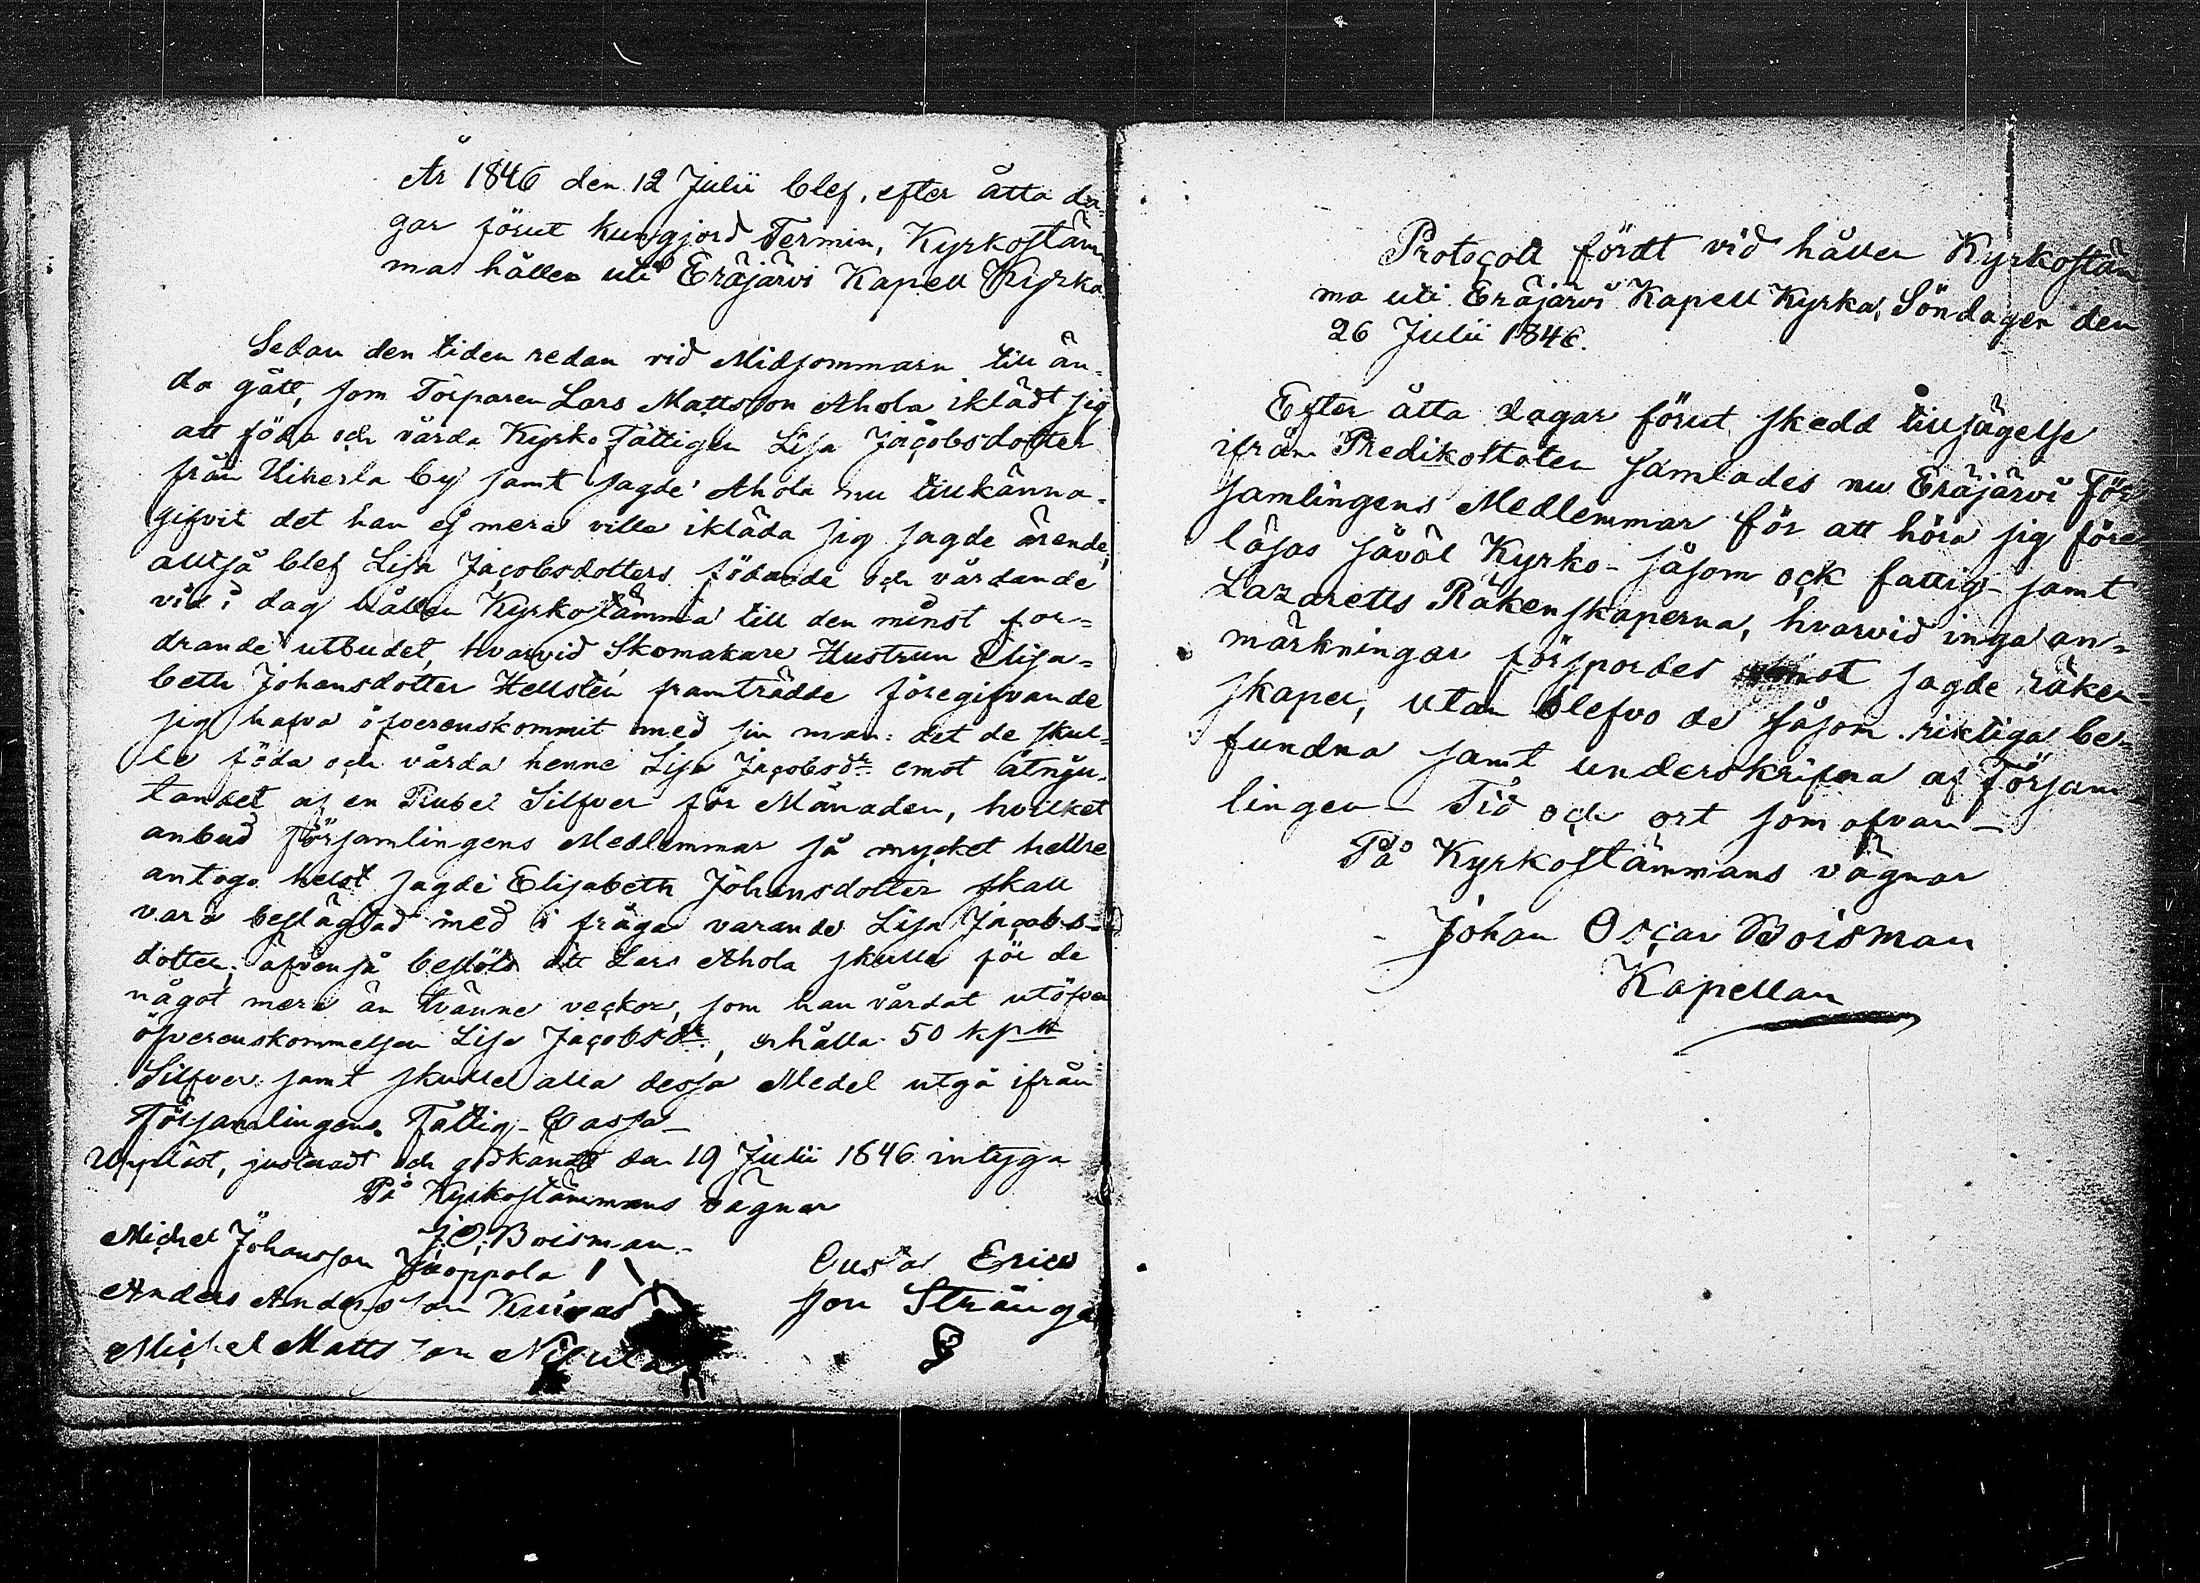 År 1846 den 12 Julii blef, efter åtta da-
gar förut kungjord Termin, Kyrkostäm
ma hållen uti Eräjärvi Kapell Kyrka.
Sedan den tiden redan vid Midsommarn till än-
da gått, som Torparen Lars Mattsson Ahola iklädt sig
att föda och vårda Kyrko Fattigen Lisa Jacobsdotter
från Uiherla by samt sagde Ahola nu tillkänna-
gifvit det han ej mera ville ikläda sig sagde ärende,
alltså blef Lisa Jacobsdotters födande och vårdande
vid i dag hållen Kyrkostämma till den minst for=
drande utbudet, hvarvid Skomakare Hustrun Elisa=
beth Johansdotter Hellstén framträdde föregifvande
sig hafva öfverenskommit med sin man: det de skul=
le föda och vårda henne Lisa Jacobsdr emot åtnju-
tandet af en Rubel Silfver för Månaden, hvilket
anbud Församlingens Medlemmar så mycket hellre
antogo helst sagde Elisabeth Johansdotter skall
vara beslägtad med i fråga varande Lisa Jacobs-
dotter; äfvenså beslöts att Lars Ahola skulle för de
något mera än tvänne veckor, som han vårdat utöfver
öfverenskommelsen Lisa Jacobsdr, erhålla 50 kp
Silfver samt skulle alla dessa Medel utgå ifrån
Församlingens Fattig-Cassa-
Uppläst, justeradt och godkändt den 19 Julii 1846 intyga
På Kyrkostämmans vägnar
J. O. Boisman.
Michel Johansson Jaoppola
Anders Andersson Kuivas
Michel Matts son
Gusta Erics
son Stränga
Protocoll fördt vid hållen Kyrkostäm
ma uti Eräjärvi Kapell Kyrka, Söndagen den
26 Julii 1846.
Efter åtta dagar förut skedd tillsägelse
ifrån Predikostolen samlades nu Eräjärvi För
samlingens Medlemmar för att höra sig före
läsas såväl Kyrko- såsom ock fattig- samt
Lazaretts Räkenskaperna, hvarvid inga an=
märkningar förspordes emot sagde räken=
skaper, utan blefvo de såsom riktiga be=
fundna samt underskrifna af Försam=
lingen - Tid och ort som ofvan -
På Kyrkostämmans vägnar
Johan Oscar Boisman
Kapellan